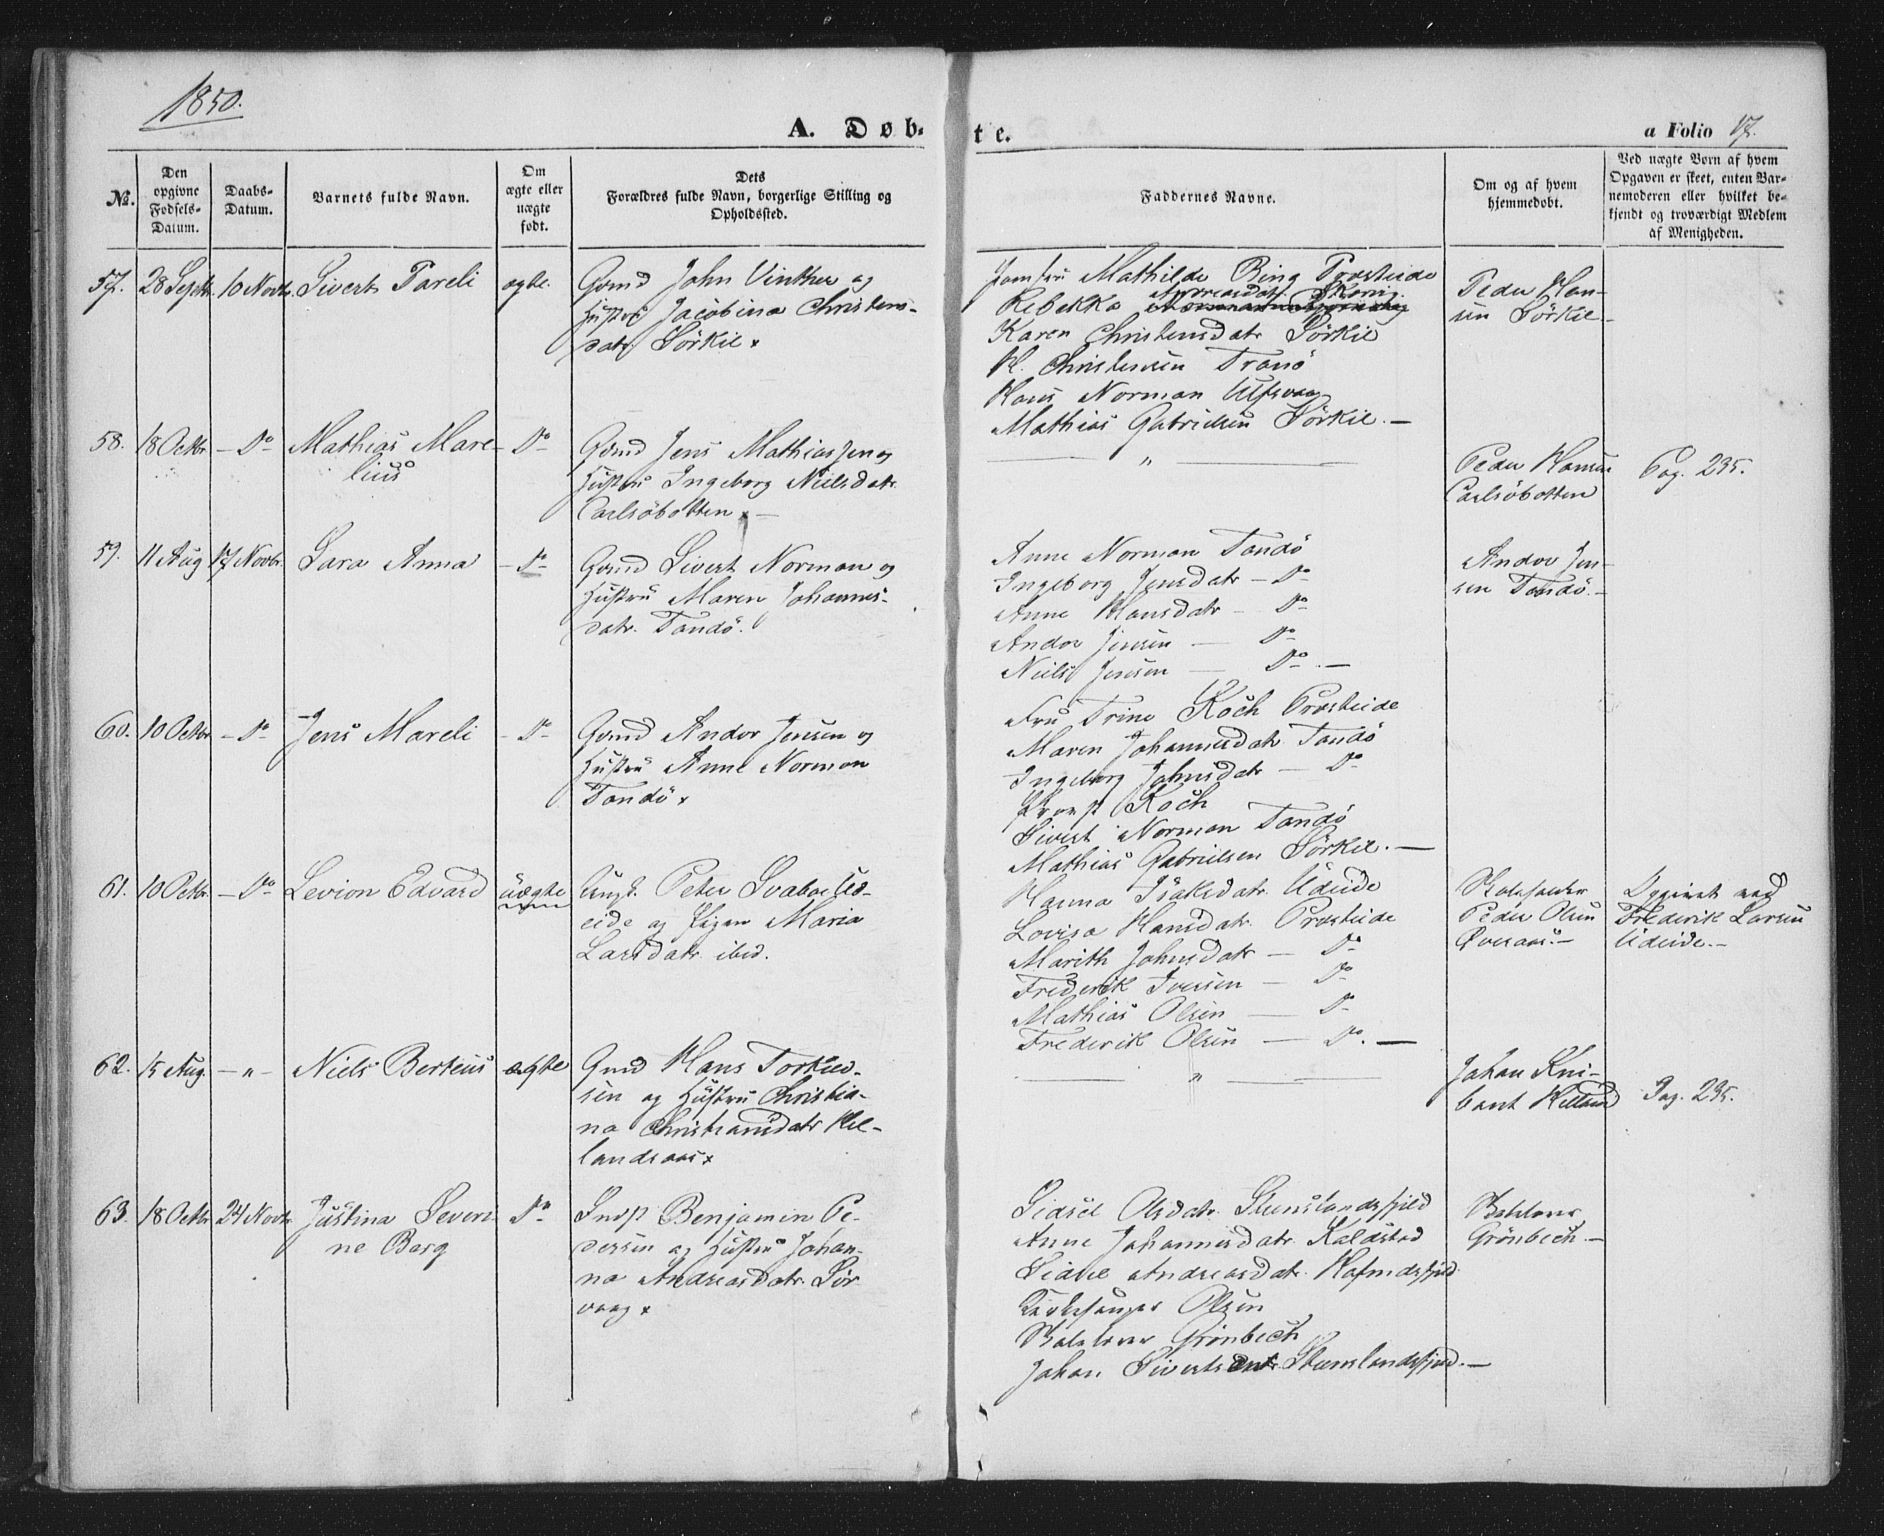 1850.
A. Døb-
te.
a Folio 17.
No.
Den opgivne Fødsels-Datum.
Daabs-Datum.
Barnets fulde Navn.
Om ægte eller uægte født.
Dets Forældres fulde Navn, borgerlige Stilling og Opholdssted.
Faddernes Navne.
Om og af hvem hjemmedøbt.
Ved uægte Børn af hvem Opgaven er skeet, enten Barnemoderen eller hvilket bekjendt og troværdigt Medlem af Menigheden.
57. 28 Septbr. 10 Novbr. Sivert Pareli ægte.
Gmd John Vinther og
Hustru Jacobina Christens-
datr Sörkil
Jomfru Mathilde Bing Præsteide
Rebekka Andreasdatr
Karen Christensdatr Sörkil
H. Christensen Tranö
Hans Norman Ulfsvaag
Mathias Gabrielsen Sörkil. —
Peder Han-
sen Sörkil —
58. 18 Octbr. — Do Mathias Mare-
lius
Do
Gmd Jens Mathiassen og
Hustru Ingeborg Nielsdatr
Carlsöbotten —
— " —
Peder Hansen
Carlsöbotten
Pag. 235.
59. 11 Aug 17 Novbr. Sara Anna — Do
Gmd Sivert Norman og
Hustru Maren Johannes-
datr. Tandö.
Anne Norman Tandö
Ingeborg Jensdatr — Do
Anne Hansdatr — Do
Andor Jensen — Do
Niels Jensen — Do —
Andor Jen-
sen Tandö. —
60. 10 Octbr — Do Jens Mareli — Do
Gmd Andor Jensen og
Hustru Anne Norman
Tandö
Fru Trine Koch Præsteide
Maren Johannesdatr Tandö
Ingeborg Johnsdatr — Do
Provst Koch
Sivert Norman Tandö
Mathias Gabrielsen Sörkil. —
61. 10 Octbr — Do Levion Edvard uægte
Ungk. Peter Svaboe Ud-
eide og Pigen Maria
Larsdatr ibid.
Hanna Isaksdatr Udeide
Lovisa Hansdatr. Præsteide
Marith Johnsdatr — Do
Frederik Iversen — Do
Mathias Olsen — Do
Frederik Olsen — Do. —
Skoleholder
Peder Olsen
Överaas. —
Opgivet ved
Frederik Larsen
Udeide. —
62. 15 Aug. — " — Niels Berteus ægte
Gmd Hans Torkild-
sen og Hustru Christia-
na Christiansdatr Hel-
landsaas
— " —
Johan Kni-
Helland
Pag. 235.
63. 18 Octbr 24 Novbr. Justina Severi-
ne Berg
Do
Inds Benjamin Pe-
dersen og Hustru Johan-
na Andreasdatr. Sör-
vaag
Sidsel Olsdatr. Stenslandsfjeld
Anne Johannesdatr Kaldstad
Sidsel Andreasdatr.
Kirkesanger Olsen
Grönbech
Johan Sivertsen Stenslandsfjeld. —
Grönbech. —